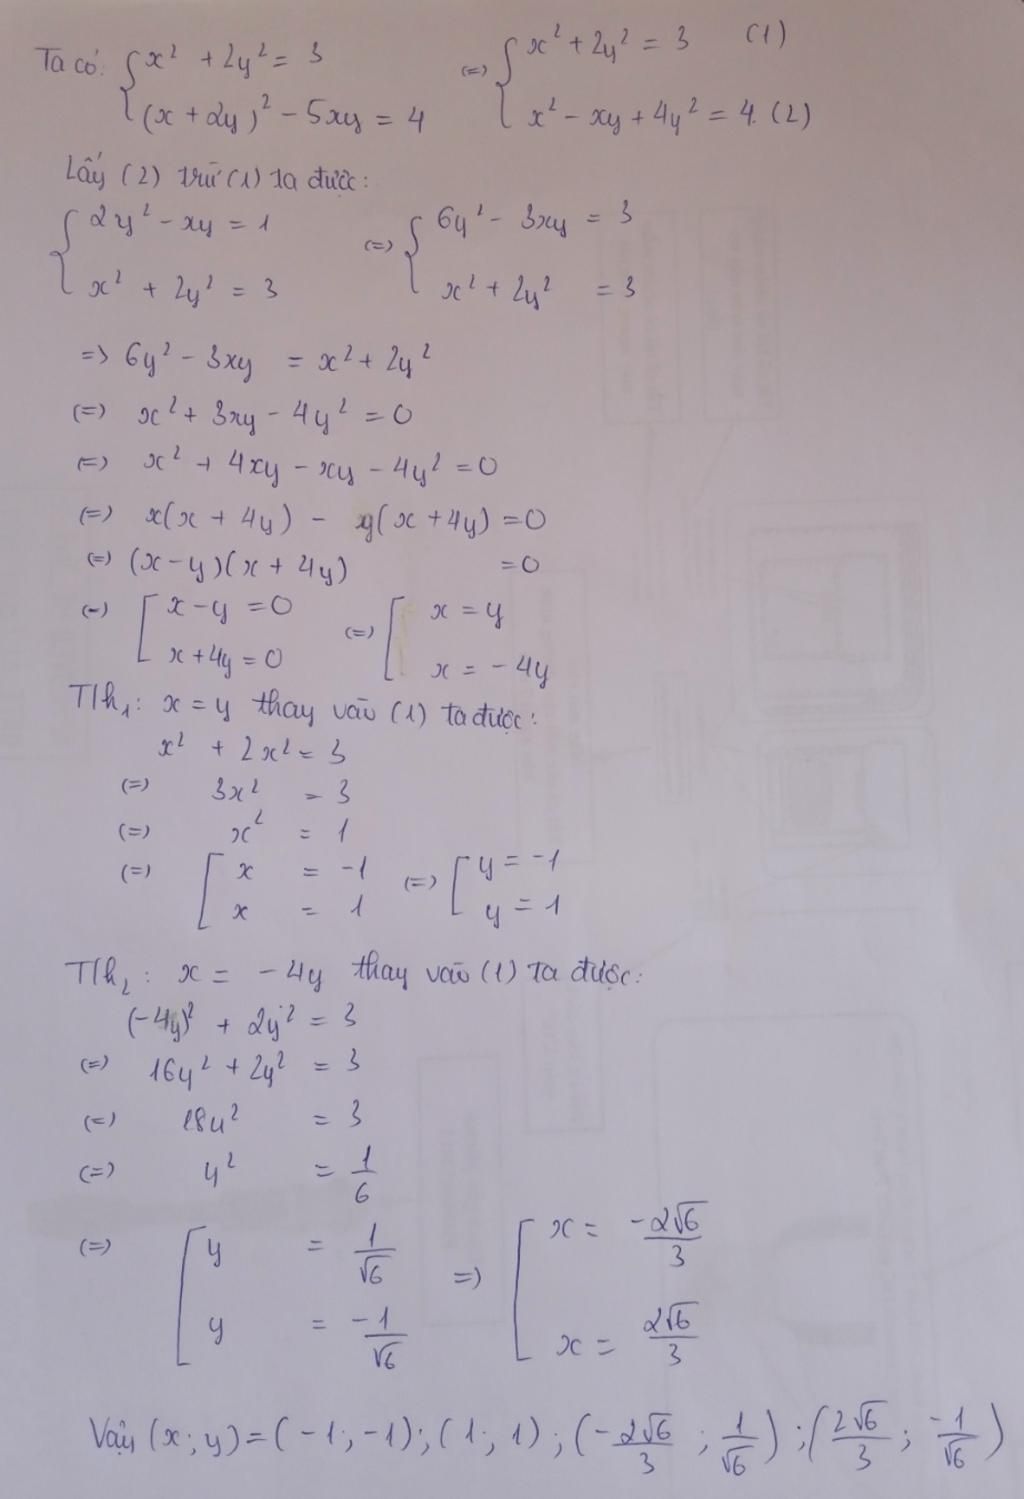 Ta có: { x² + 2y² = 3 (=) { x² + 2y² = 3 (1)
(x + 2y)² - 5xy = 4 x² - xy + 4y² = 4. (2)
Lấy (2) trừ (1) ta được:
{ 2y² - xy = 1 (=) { 6y² - 3xy = 3
x² + 2y² = 3 x² + 2y² = 3
=> 6y² - 3xy = x² + 2y²
(=) x² + 3xy - 4y² = 0
(=) x² + 4xy - xy - 4y² = 0
(=) x(x + 4y) - y(x + 4y) = 0
(=) (x - y)(x + 4y) = 0
(=) [ x - y = 0 (=) [ x = y
x + 4y = 0 x = - 4y
T/h₁: x = y thay vào (1) ta được:
x² + 2x² = 3
(=) 3x² = 3
(=) x² = 1
(=) [ x = -1 (=) [ y = -1
x = 1 y = 1
T/h₂: x = - 4y thay vào (1) ta được:
(-4y)² + 2y² = 3
(=) 16y² + 2y² = 3
(=) 18y² = 3
(=) y² = 1/6
(=) [ y = 1/√6 =) [ x = -2√6/3
y = -1/√6 x = 2√6/3
Vậy (x; y) = (-1; -1); (1; 1); (-2√6/3; 1/√6); (2√6/3; -1/√6)